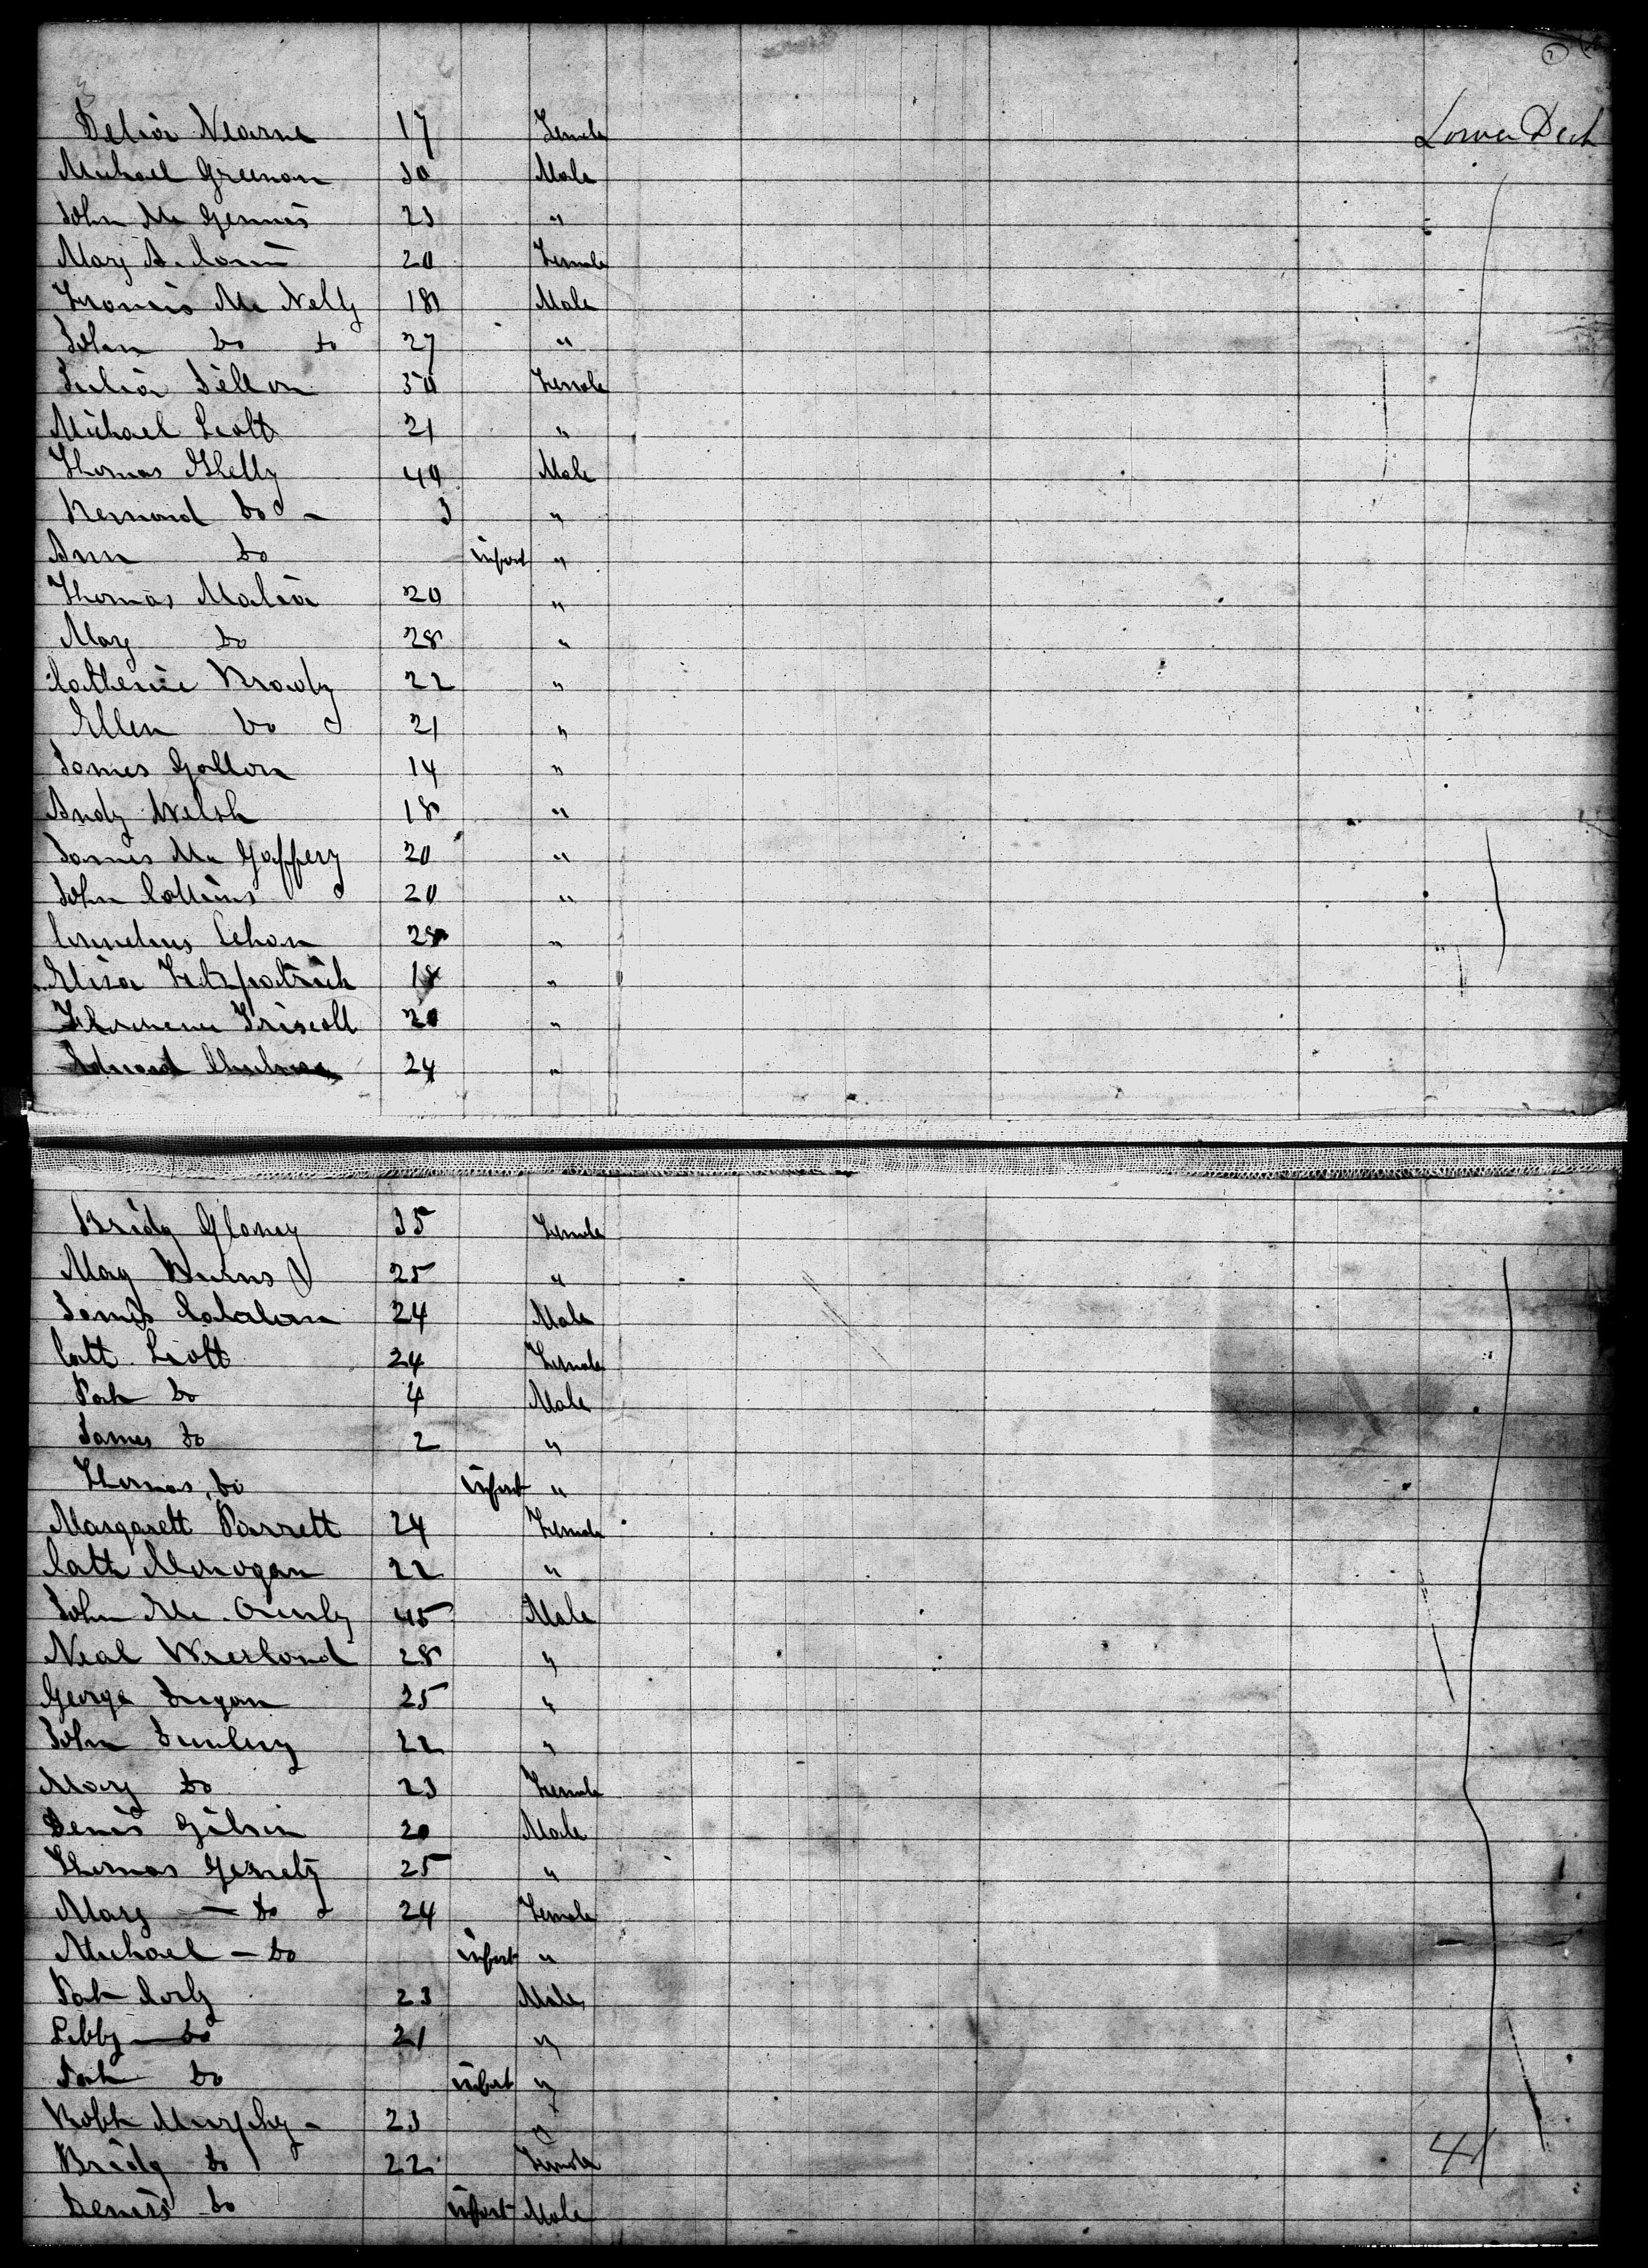 Lower Deck
Delia Nearne 17 Female
Michael Greenan 30 Male
John Mc Gennis 23 "
Mary A. 20 Female
Francis Mc Nelly 18 Male
John Do Do 27 "
Julia Dillon 30 Female
Michael Scott 21 "
Thomas Shelly 40 Male
Bernard Do - 3 "
Ann Do infant "
Thomas Malia 20 "
Mary Do 28 "
Catherine Brady 22 "
Ellen Do 21 "
James Gallon 14 "
Andy Welsh 18 "
James Mc Gaffery 20 "
John Collins 20 "
Cornelius Cehan 28 "
Eliza Fitzpatrick 18 "
Florence Driscoll 20 "
Edward 24 "
Bridg Glaney 35 Female
Mary Burns 25 "
James Calahan 24 Male
Cath Scott 24 Female
Pat Do 4 Male
James Do 2 "
Thomas Do infant "
Margarett Parrett 24 Female
Cath Monogan 22 "
John Mc 45 Male
Neal 28 "
George Dugan 25 "
John 22 "
Mary Do 23 Female
Denis Gibsin 20 Male
Thomas Gerrety 25 "
Mary - Do 24 Female
Michael - Do infant "
Pat Corly 23 Male
Libby - Do 21 "
Pat Do infant "
Robt Murphy - 23 "
Bridg Do 22 Female
Denis Do infant Male
41